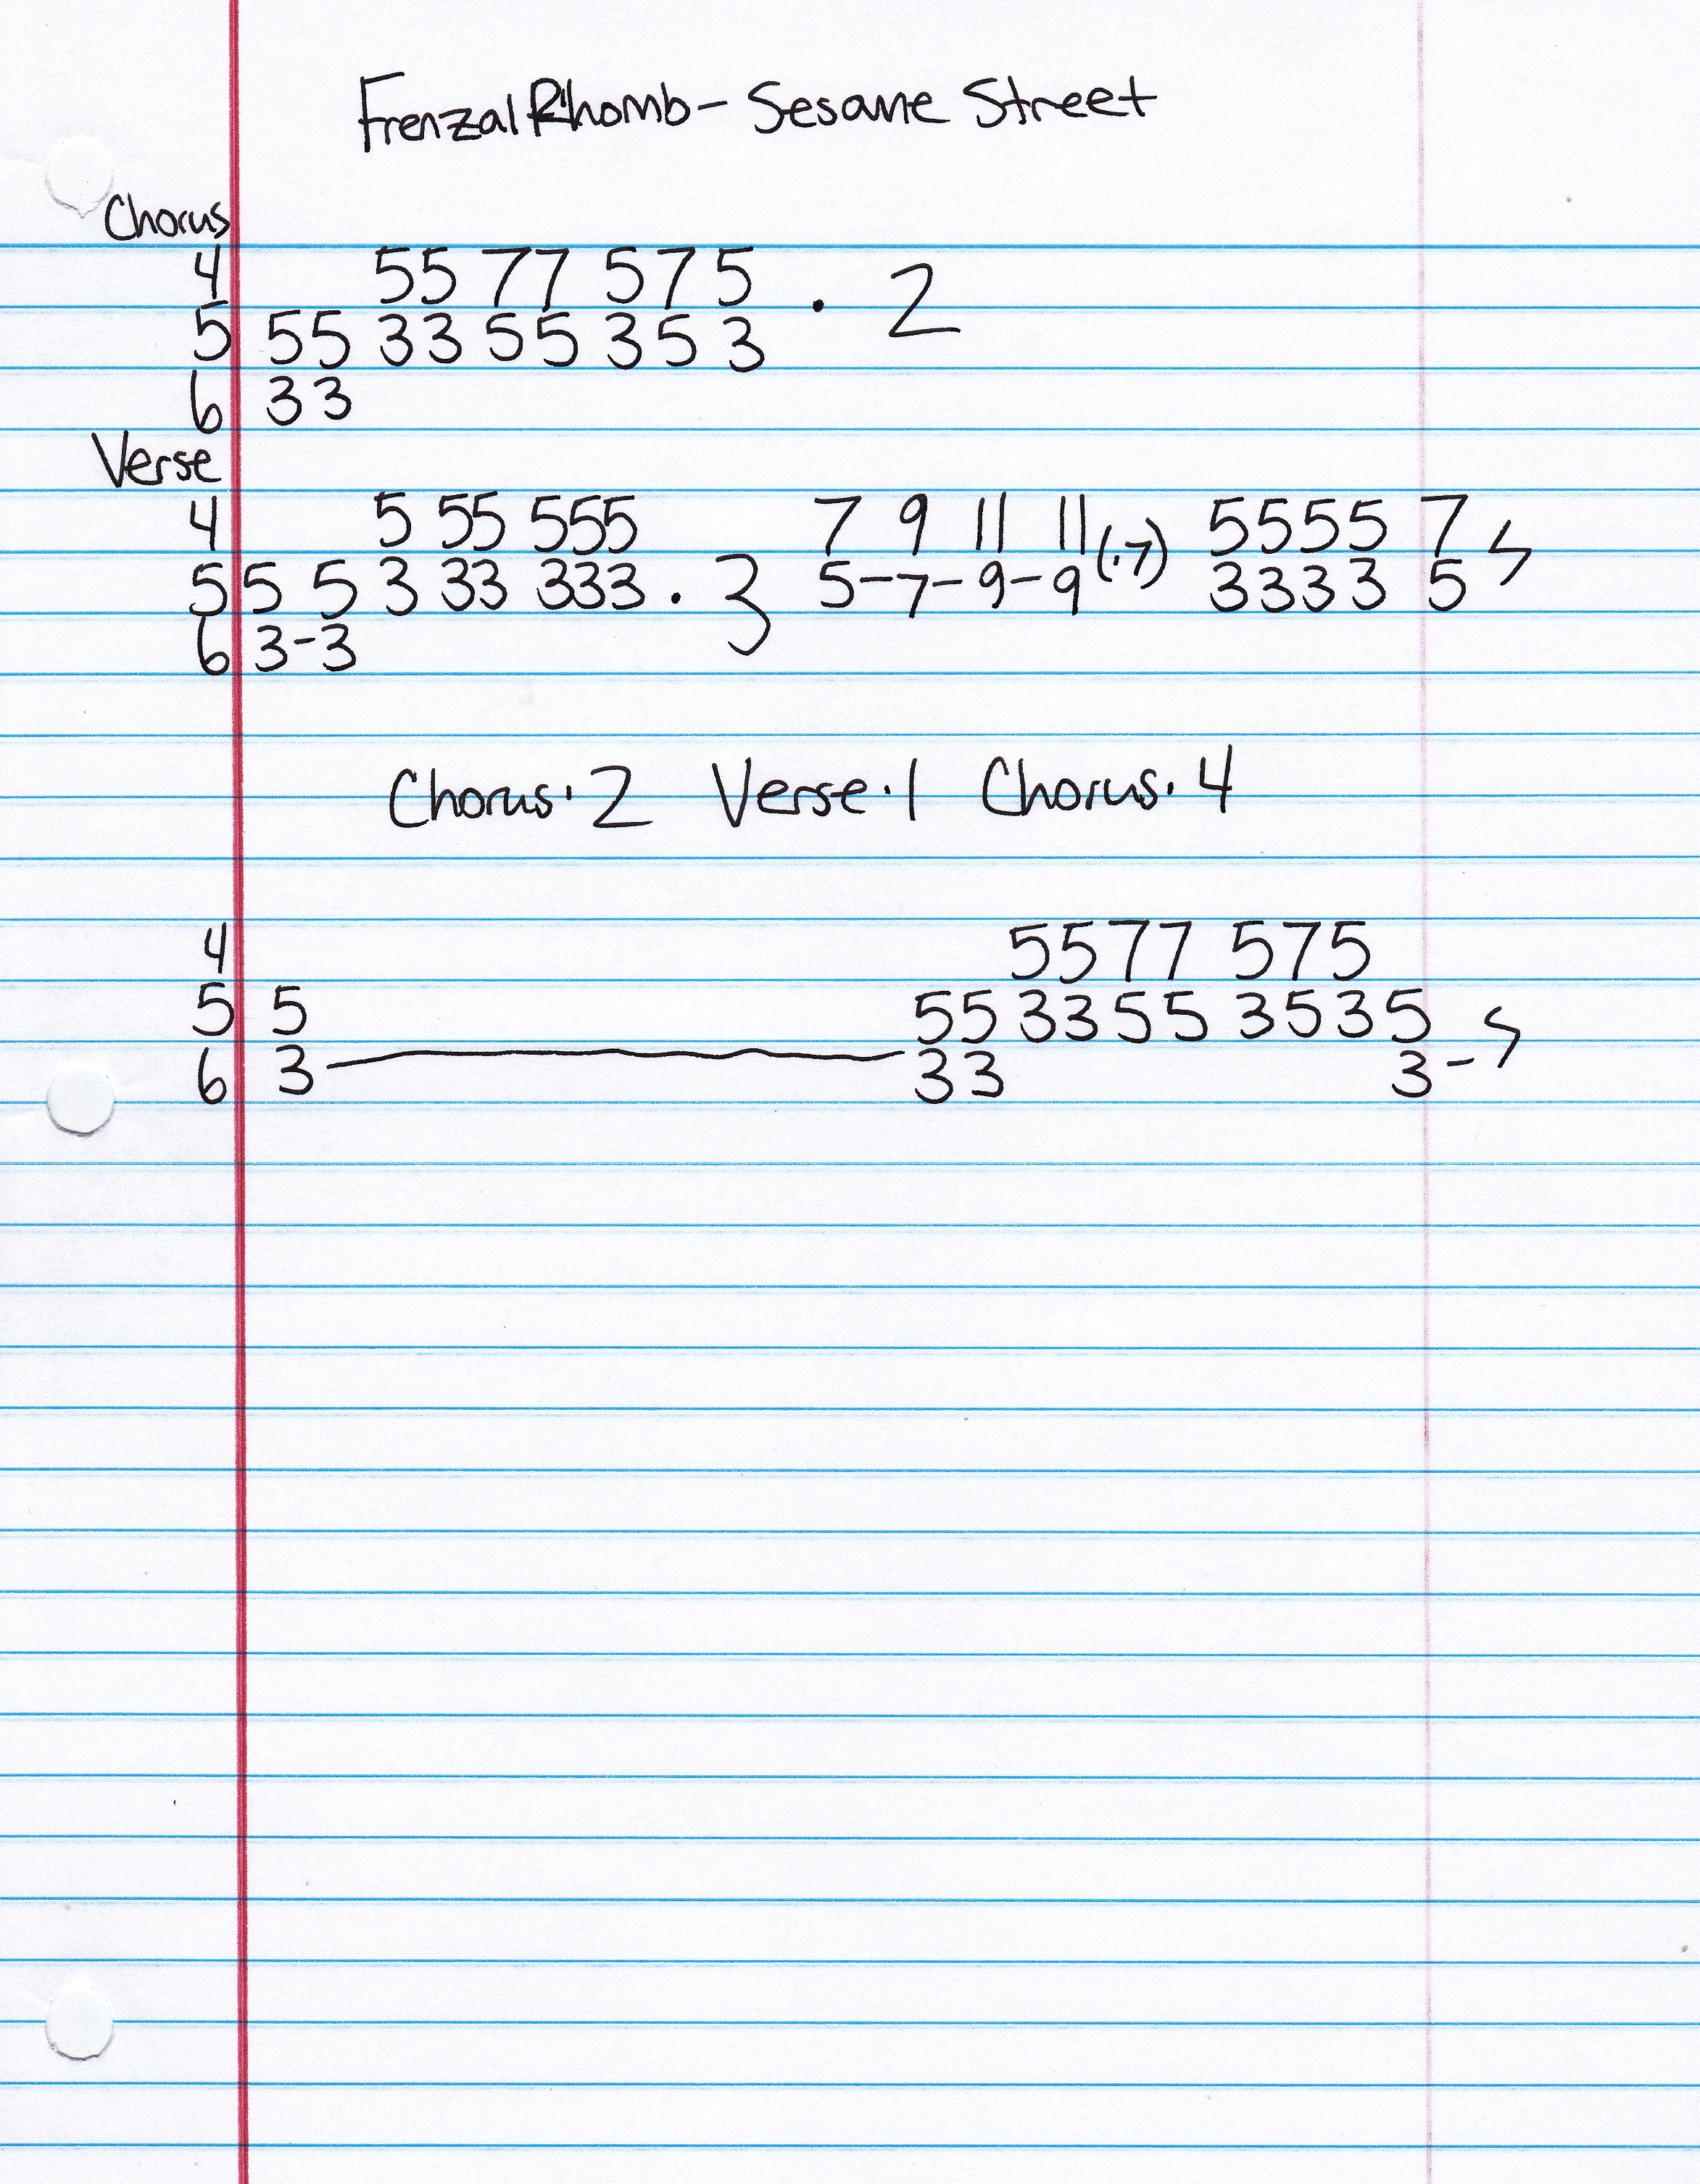 Frenzal Rhomb - Sesame Street
Chorus
4 55 77 575 · 2
5 55 33 55 353
6 33
Verse
4 5 55 555 7 9 11 11 (·7) 5555 7
5 5 5 3 33 333 · 3 5-7-9-9 3333 5
6 3-3
Chorus·2 Verse·1 Chorus·4
4 5577 575
5 5 55 3355 3535
6 3 — 33 3-